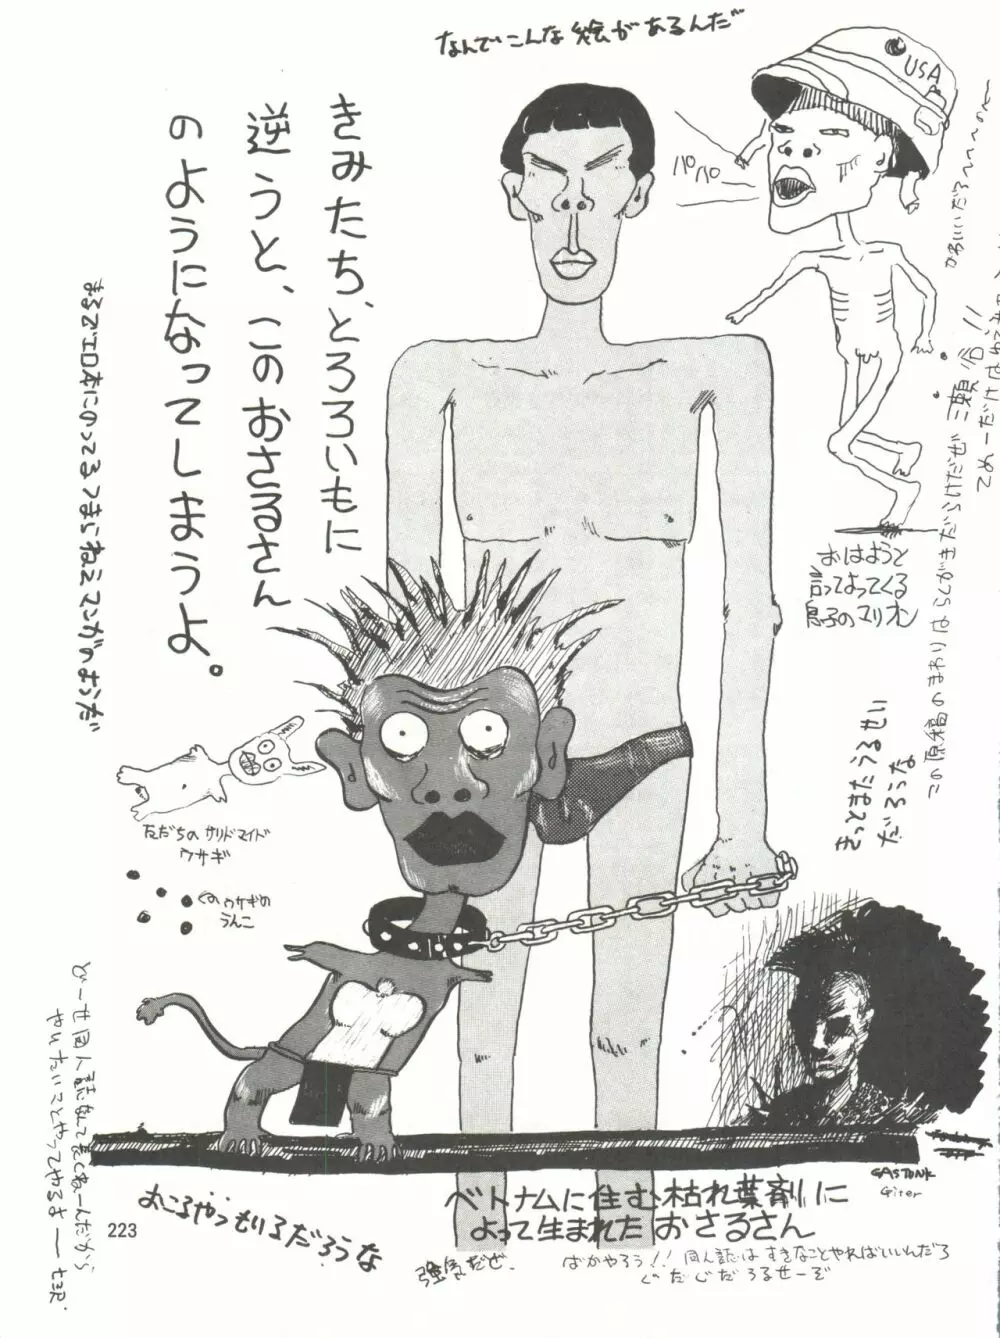 なんでこんな絵があるんだ
USA
パパパ
きみたち、とろろいもに
逆うと、このおさるさん
のようになってしまうよ。
まるでエロ本にのってるつまんねェマンガのようだ
おはようと
言ってよってくる
息子のマリオン
この原稿のまわりはらくがきだらけだぜ
きっとまたうるせい
だろうな
友だちのサリドマイド
ウサギ
ウサギの
うんこ
どーせ同人誌なんて
やりたいことやってやるよ
GASTUNK
Giter
ベトナムに住む枯れ葉剤に
よって生まれたおさるさん
おこるやつもいるだろうな
223
強気だぜ.
ばかやろう!! 同人誌はすきなことやればいいんだろ
ぐだぐだうるせーぞ